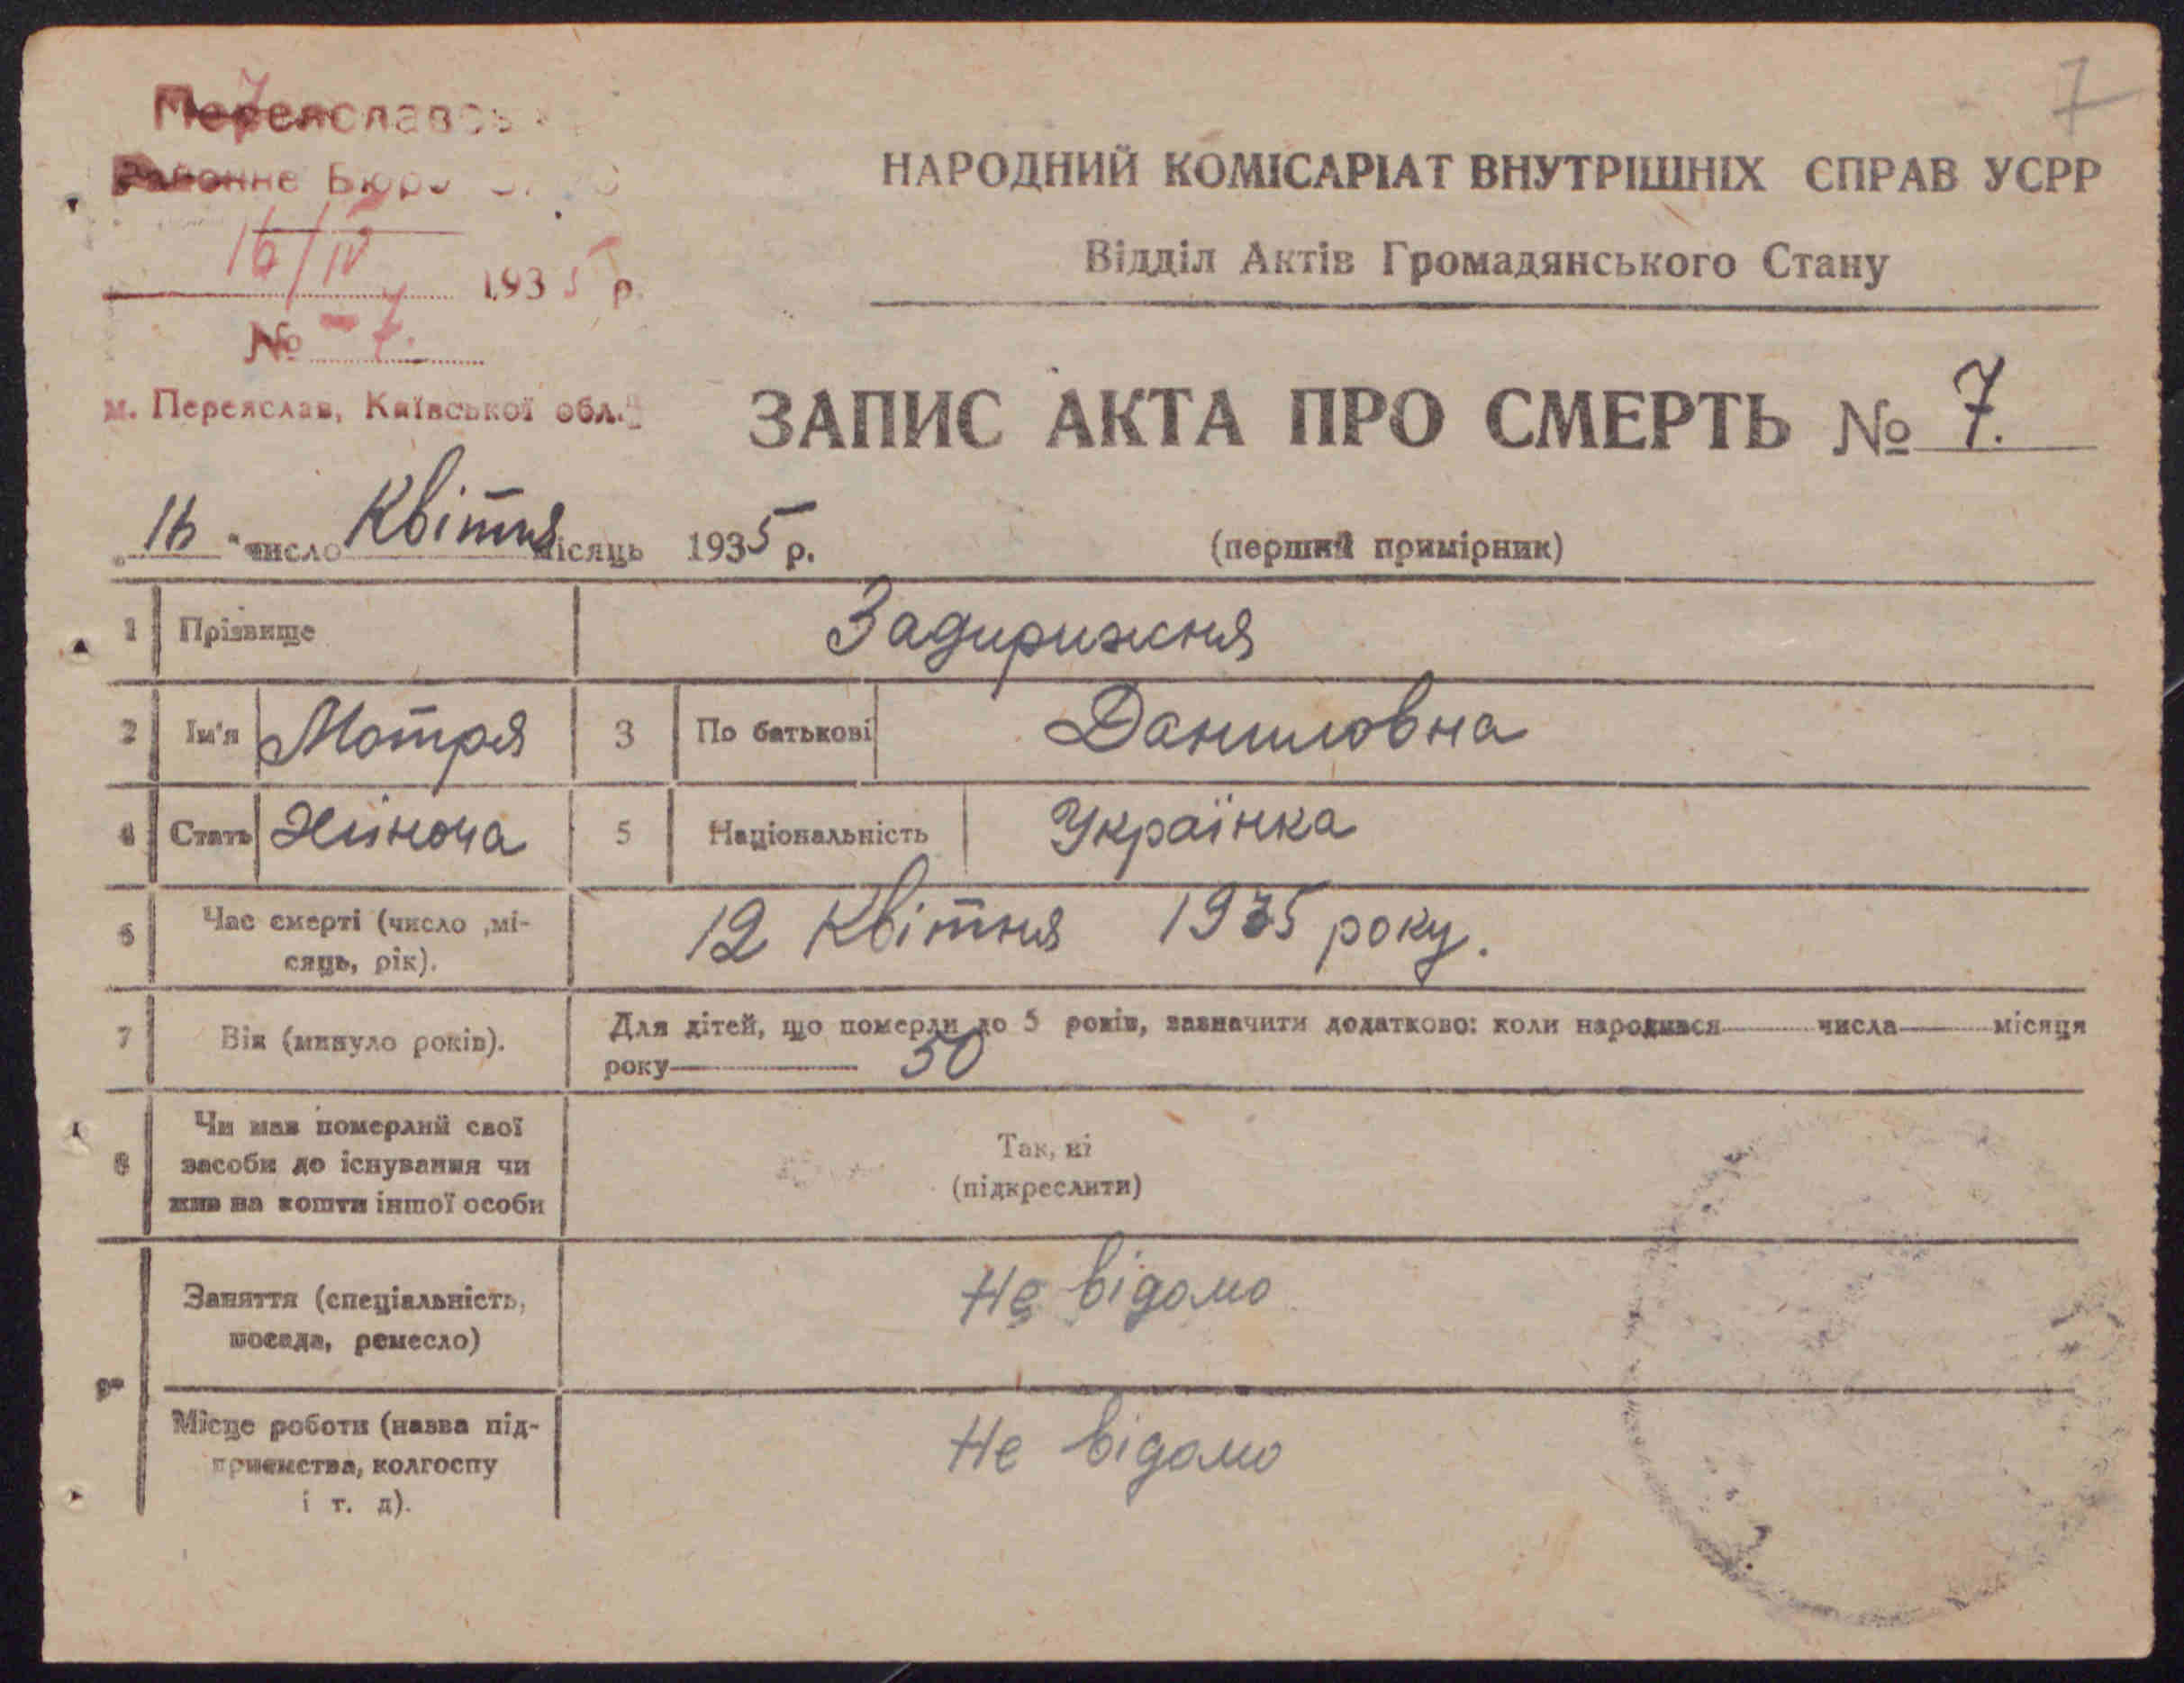 7
Переяславсь
Районне Бюро
НАРОДНИЙ КОМІСАРІАТ ВНУТРІШНІХ СПРАВ УСРР
Відділ Актів Громадянського Стану
16/IV 1935 р.
№ - 7.
м. Переяслав, Київської обл.
ЗАПИС АКТА ПРО СМЕРТЬ № 7.
„16" число Квітня місяць 1935 р.
(перший примірник)
1 Прізвище Задирижня
2 Ім'я Мотря 3 По батькові Даниловна
4 Стать Жіноча 5 Національність Українка
6 Час смерті (число ,мі-
сяць, рік).
12 Квітня 1935 року.
7 Вік (минуло років).
Для дітей, що померли до 5 років, зазначити додатково: коли народився числа місяця
року 50
8 Чи мав померлий свої
засоби до існування чи
жив на кошти іншої особи
Так, ні
(підкреслити)
9 Заняття (спеціальність,
посада, ремесло)
Не відомо
Місце роботи (назва під-
приємства, колгоспу
і т. д).
Не відомо